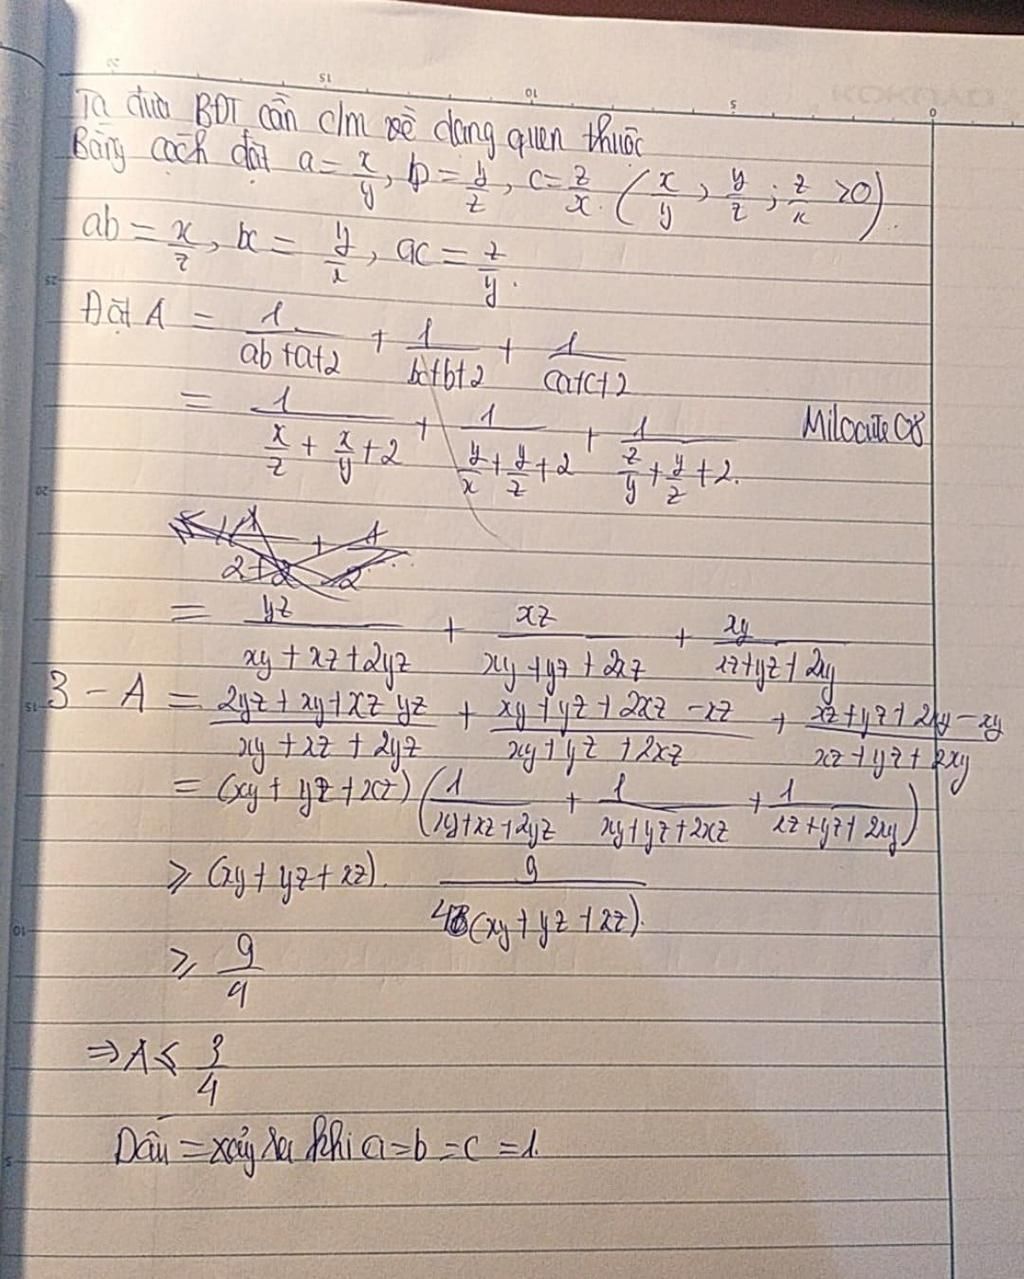 Ta đưa BĐT cần c/m về dạng quen thuộc
Bằng cách đặt a = x/y, b = y/z, c = z/x. (x/y, y/z; z/x >0).
ab = x/z, bc = y/x, ac = z/y.
Đặt A = 1/(ab+a+2) + 1/(bc+b+2) + 1/(ca+c+2)
= 1/(x/z + x/y + 2) + 1/(y/x + y/z + 2) + 1/(z/y + y/z + 2).
Milocute08
= yz/(xy + xz + 2yz) + xz/(xy + yz + 2xz) + xy/(xz + yz + 2xy)
3 - A = (2yz + xy + xz yz)/(xy + xz + 2yz) + (xy + yz + 2xz - xz)/(xy + yz + 2xz) + (xz + yz + 2xy - xy)/(xz + yz + 2xy)
= (xy + yz + xz) (1/(xy + xz + 2yz) + 1/(xy + yz + 2xz) + 1/(xz + yz + 2xy))
⩾ (xy + yz + xz). 9/(4(xy + yz + xz)).
⩾ 9/4
⇒ A ⩽ 3/4
Dấu = xảy ra khi a = b = c = 1.